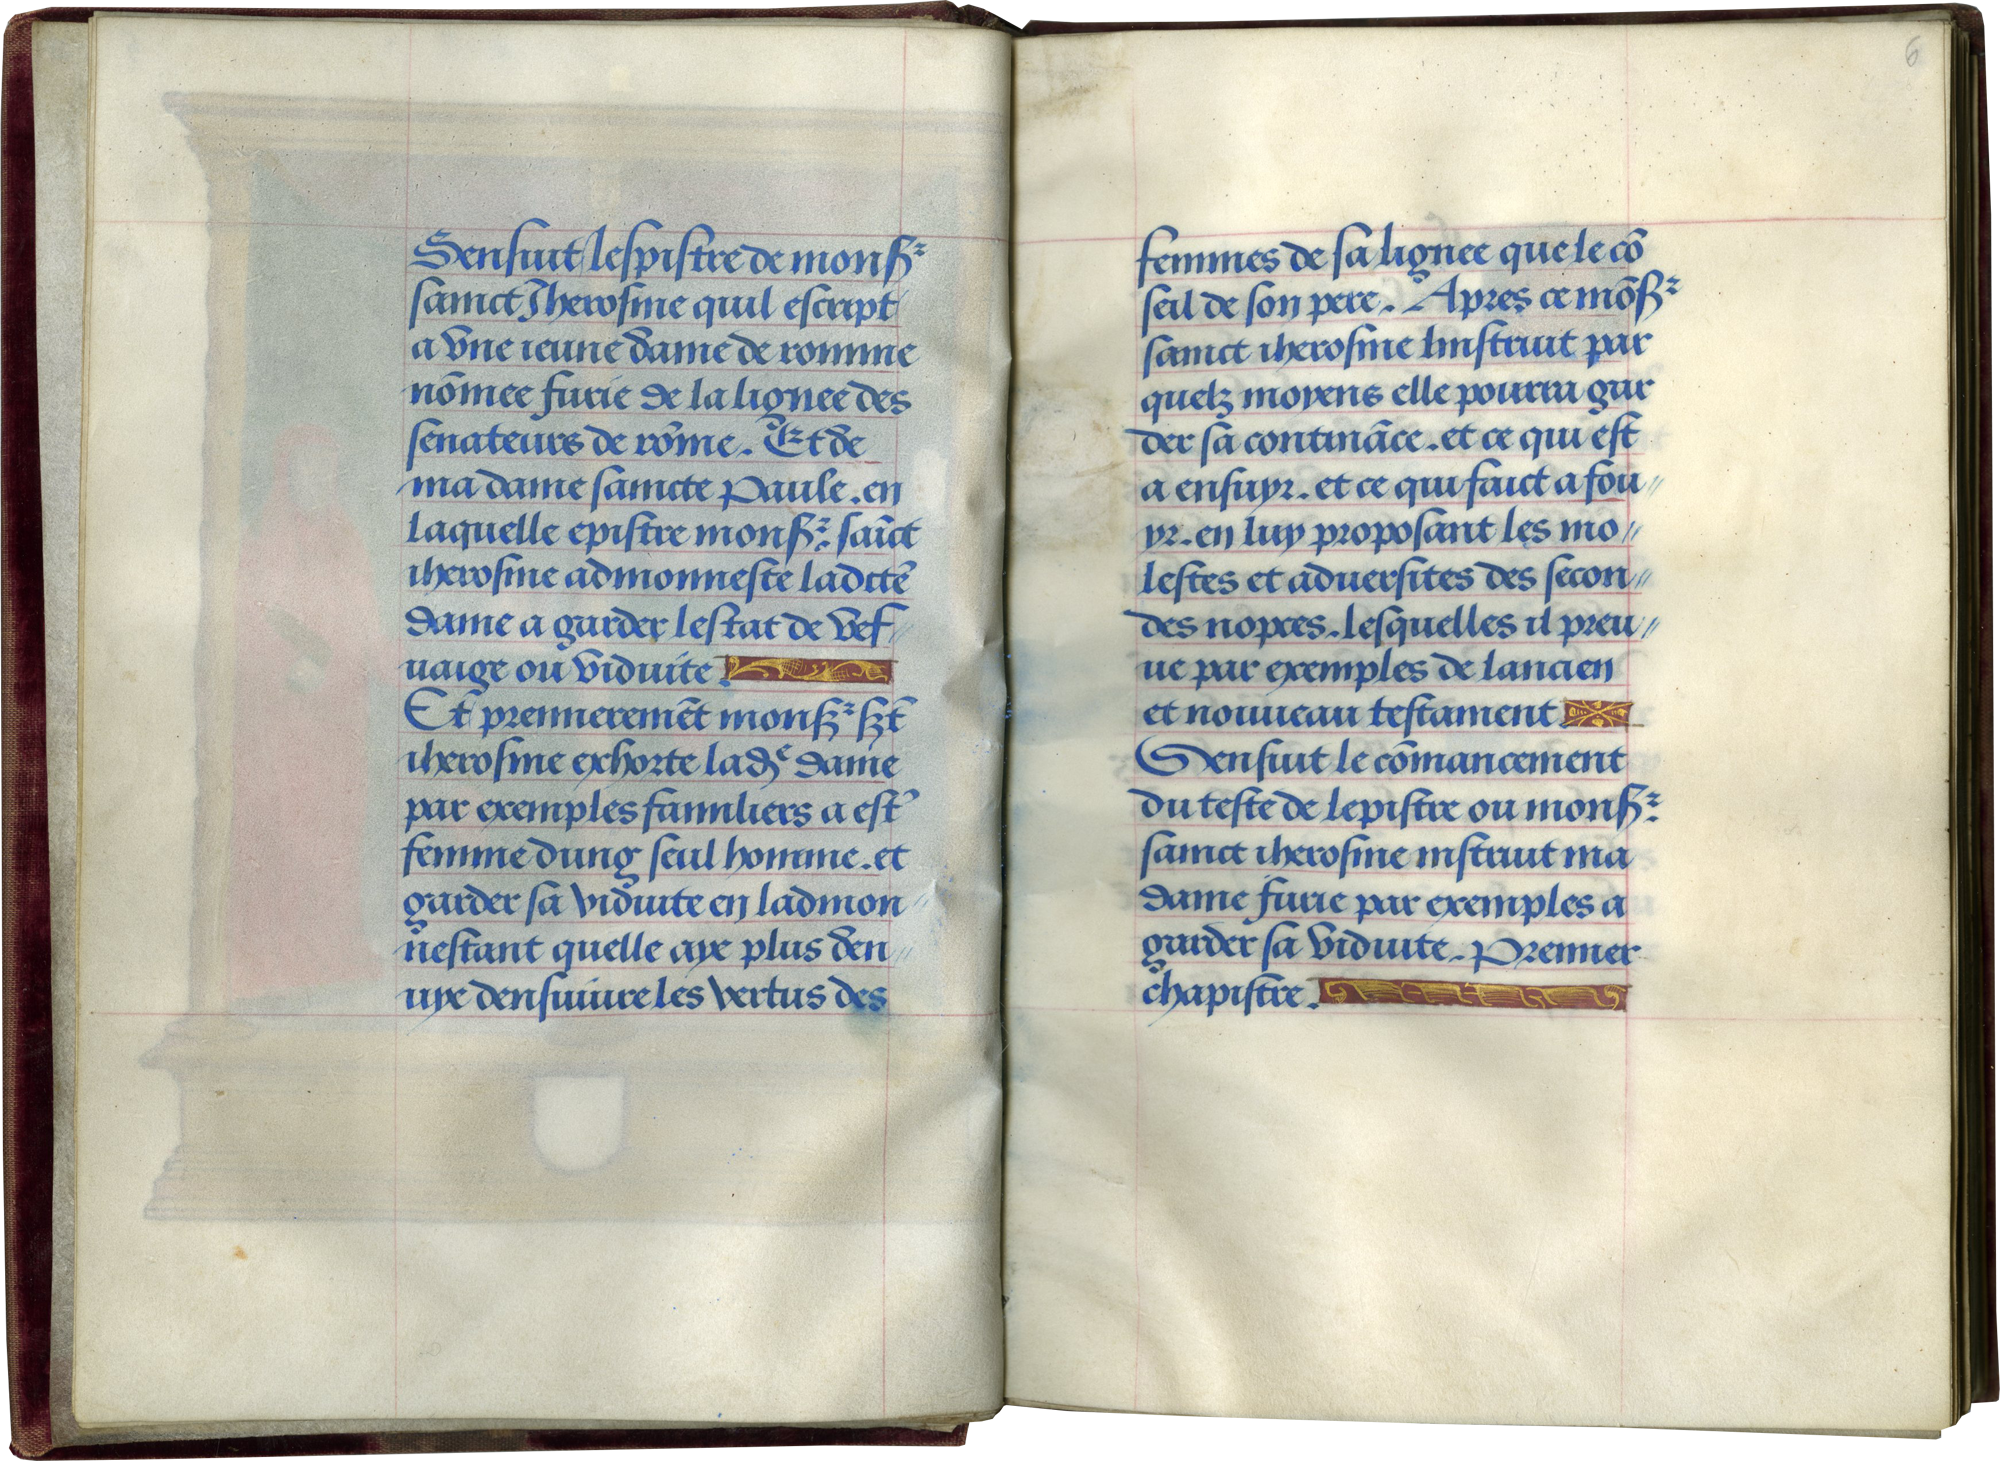 Sensuit lespistre de monsr
sainct Iherosme quil escript
a vne ieune dame de romme
nōmee furie de la lignee des
senateurs de rōme. Et de
ma dame saincte Paule. en
laquelle epistre monsr. saīct
iherosme admonneste ladctē
dame a garder lestat de vef//
uaige ou viduite.
Et premieremēt monsr sct̄
iherosme exhorte lade dame
par exemples familiers a est̄
femme dung seul homme. et
garder sa viduite en ladmon//
nestant quelle aye plus den//
uye densuiure les vertus des
6
femmes de sa lignee que le cō
seil de son pere. Apres ce mōsr
sainct iherosme linstruit par
quelz moyens elle pourra gar
der sa contināce. et ce qui est
a ensuyr. et ce qui faict a fou//
yr. en luy proposant les mo//
lestes et aduersites des secon//
des nopces. lesquelles il preu//
ue par exemples de lancien
et nouueau testament
Sensuit le cōmancement
du teste de lepistre ou monsr.
sainct iherosme instruit ma
dame furie par exemples a
garder sa viduite. Premier
chapistre.